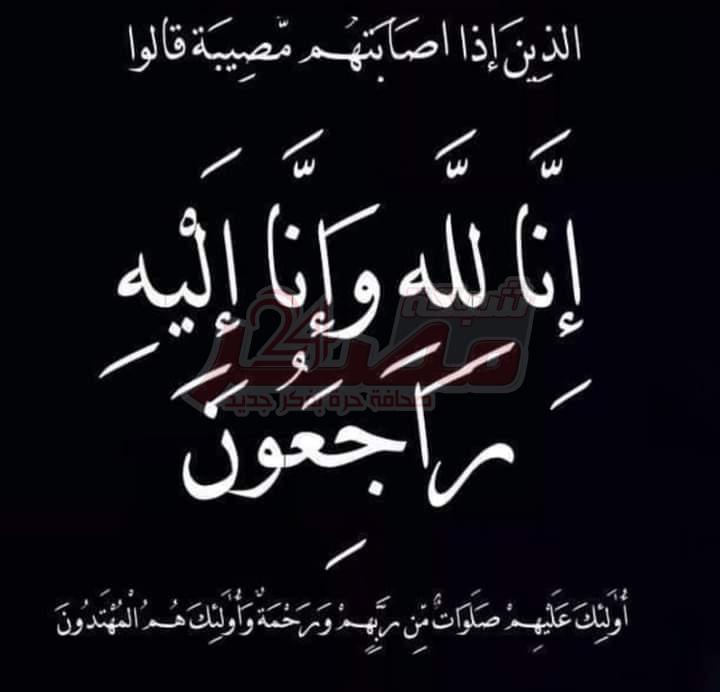 الذِينَ إذا اصَابَتهُم مّصِيبَة قالوا
إِنَّا لِلَّهِ وَإِنَّا إِلَيْهِ
شبكة
مصر 24
رَاجِعُونَ
صحافة حرة بفكر جديد
أُولَئِكَ عَلَيْهِمْ صَلَوَاتٌ مِّن رَبِّهِمْ وَرَحْمَةٌ وَأُولَئِكَ هُمُ الْمُهْتَدُونَ